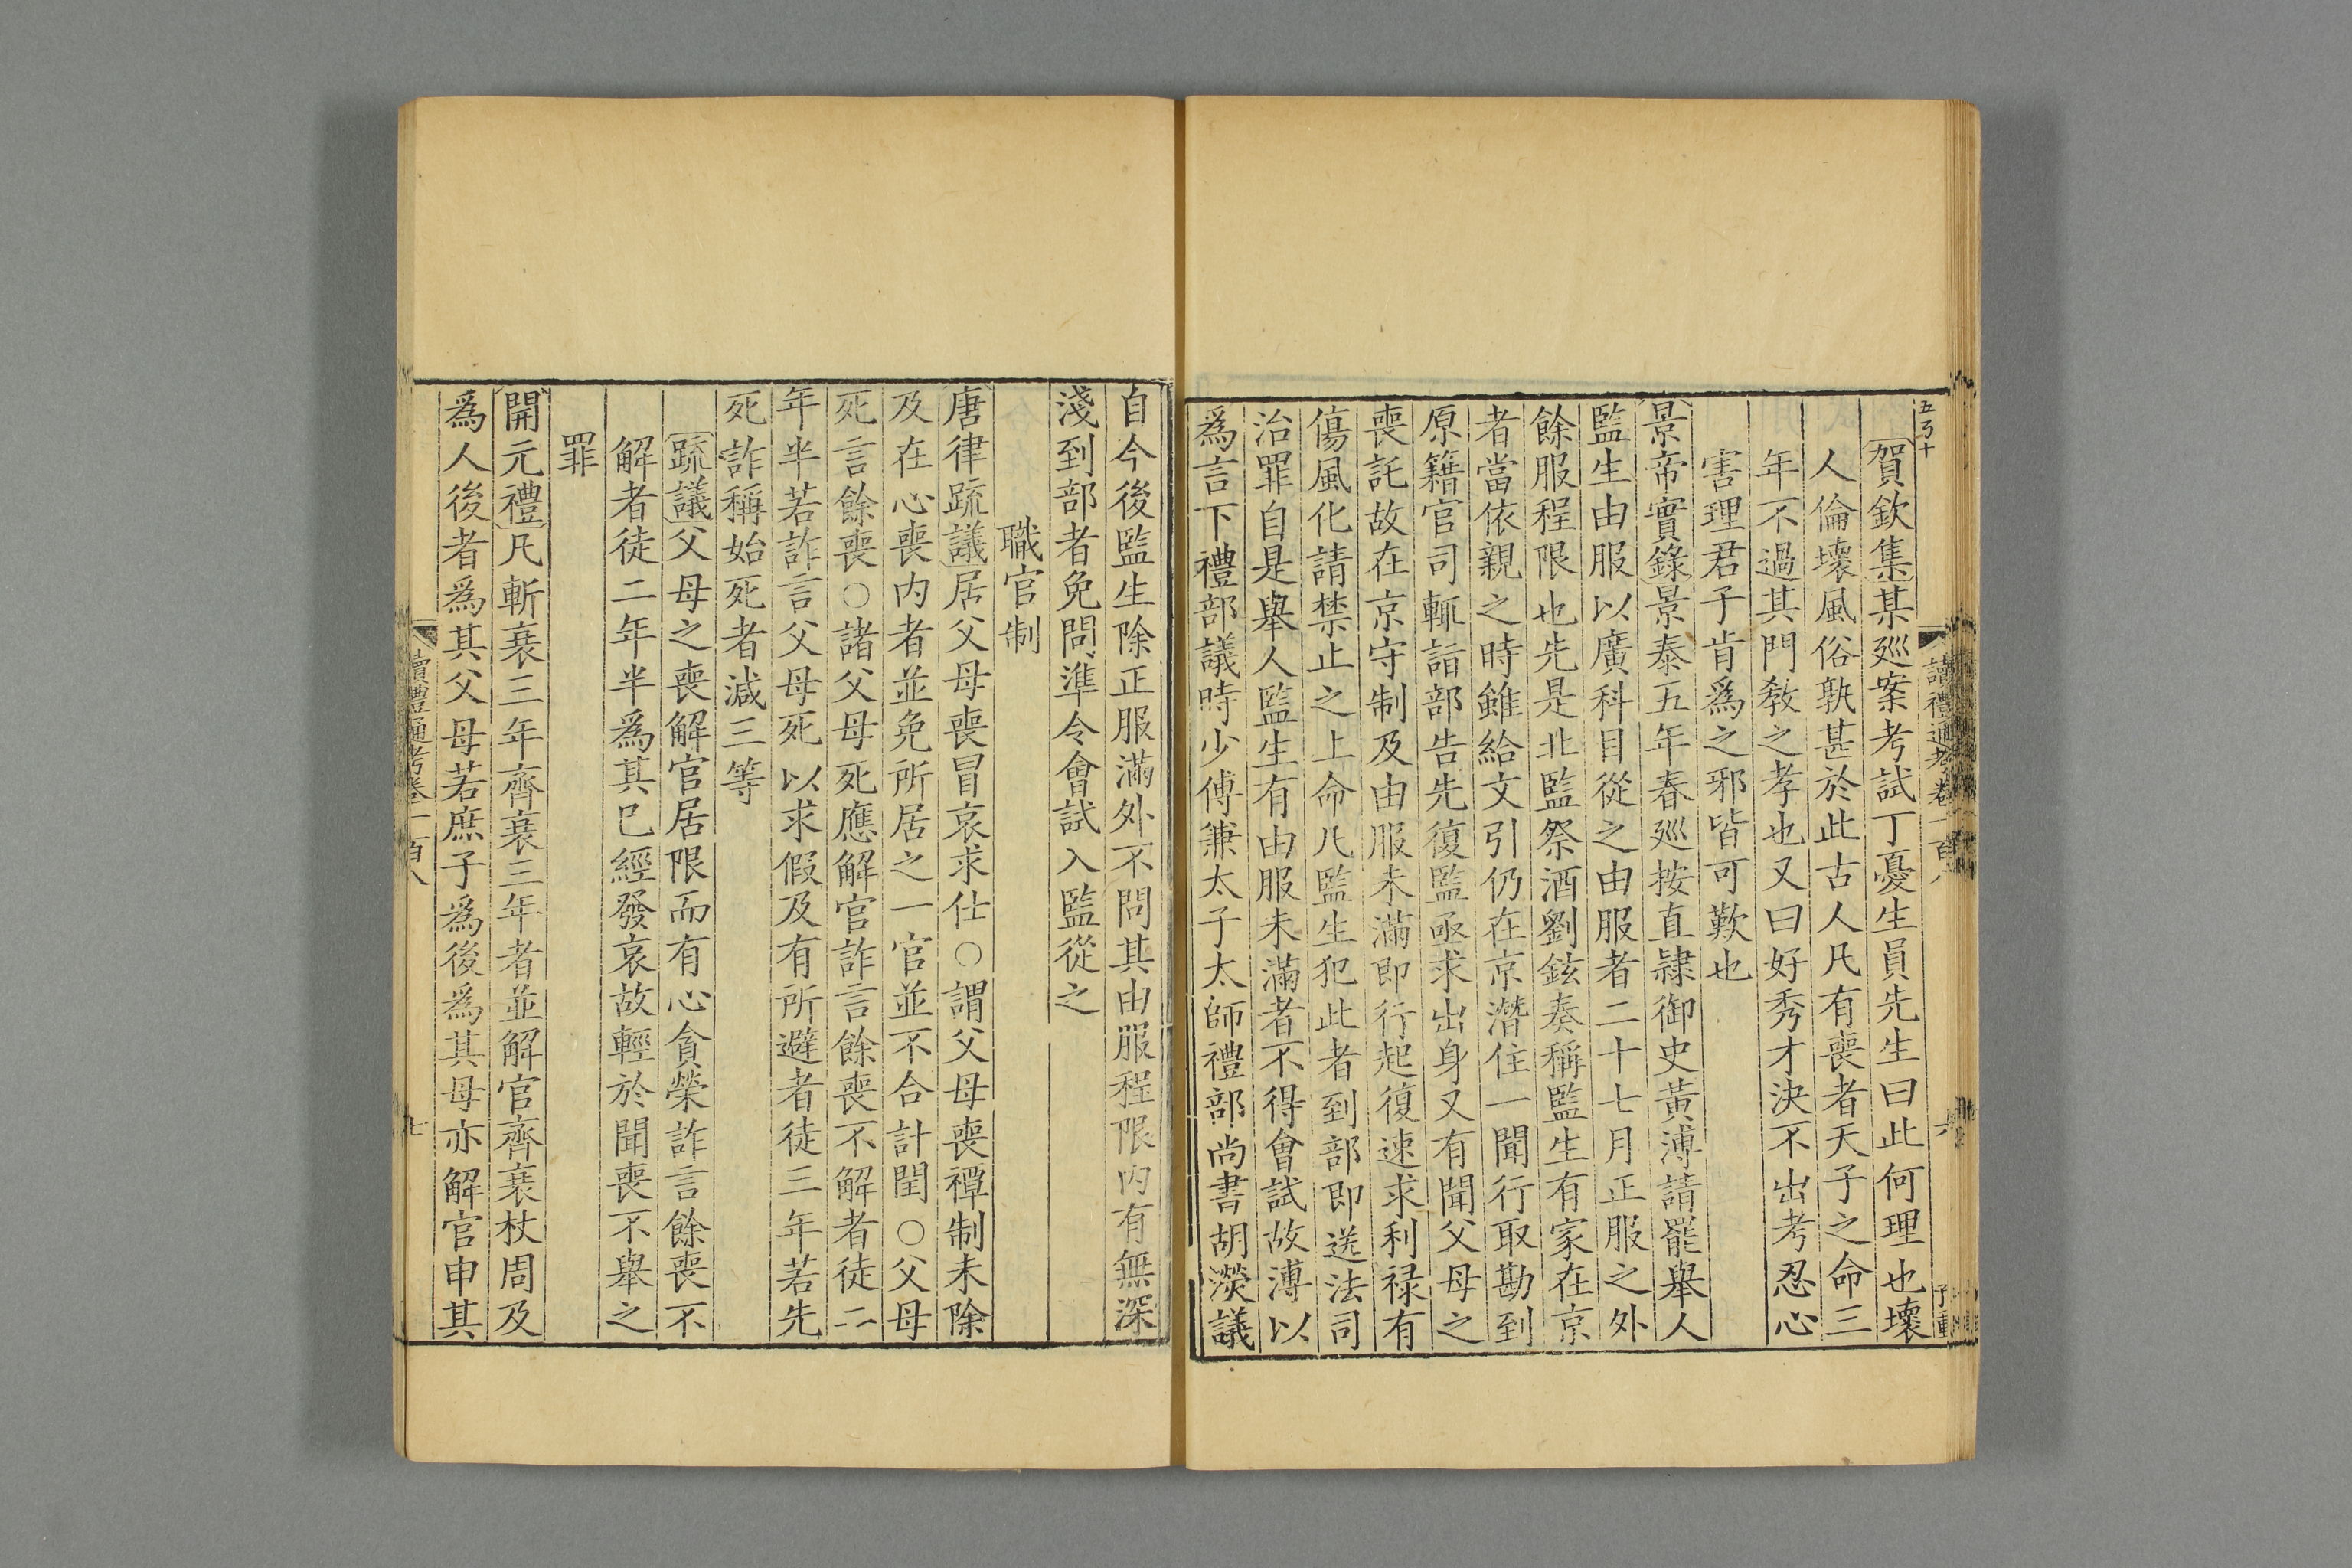 賀欽集某廵案考試丁憂生員先生曰此何理也壞
人倫壞風俗孰甚於此古人凡有喪者天子之命三
年不過其門敎之孝也又曰好秀才決不出考忍心
害理君子肯爲之邪皆可歎也
景帝實錄景泰五年春廵按直隷御史黃溥請罷舉人
監生由服以廣科目從之由服者二十七月正服之外
餘服程限也先是北監祭酒劉鉉奏稱監生有家在京
者當依親之時雖給文引仍在京潛住一聞行取勘到
原籍官司輒詣部告先復監亟求出身又有聞父母之
喪託故在京守制及由服未滿即行起復速求利禄有
傷風化請禁止之上命凡監生犯此者到部即送法司
治罪自是舉人監生有由服未滿者不得會試故溥以
為言下禮部議時少傅兼太子太師禮部尚書胡濙議
讀禮通考卷一百八
六
自今後監生除正服滿外不問其由服程限内有無深
淺到部者免問準令會試入監從之
職官制
唐律疏議居父母喪冒哀求仕○謂父母喪禫制未除
及在心喪内者並免所居之一官並不合計閏○父母
死言餘喪○諸父母死應解官詐言餘喪不解者徒二
年半若詐言父母死以求假及有所避者徒三年若先
死詐稱始死者減三等
疏議父母之喪解官居限而有心貪榮詐言餘喪不
解者徒二年半爲其已經發哀故輕於聞喪不舉之
罪
開元禮凡斬衰三年齊衰三年者並解官齊衰杖周及
爲人後者爲其父母若庶子爲後爲其母亦解官申其
讀禮通考卷一百八
七